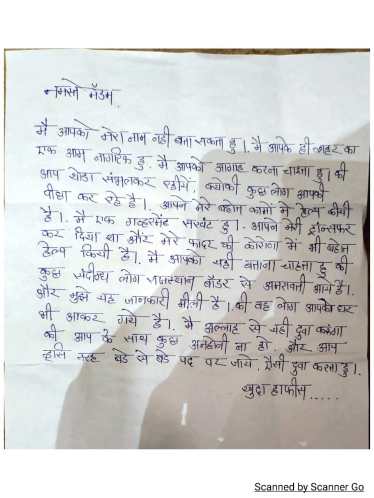 नमस्ते मॅडम,
मै आपको मेरा नाम नही बता सकता हु। मै आपके ही शहर का
एक आम नागरिक हु. मै आपको आगाह करना चाहता हु। की
आप थोडा संभलकर रहीये, क्योकी कुछ लोग आपका
पीछा कर रहे है। आपने मेरे बहोत कामो मे हेल्प कीयी
है।. मै एक गव्हरमेंट सरवंट हु। आपने मेरी ट्रान्सफर
कर दिया था और मेरे फादर की कोरोना में भी बहोत
हेल्प कियी है।. मै आपको यही बताना चाहता हु की
कुछ संदीग्ध लोग राजस्थान बॉडर से अमरावती आये है।
और मुझे यह जानकारी मीली है। की वह लोग आपके घर
भी आकर गये है।. मै अल्लाह से यही दुवा करूंगा
की आप के साथ कुछ अनहोनी ना हो. और आप
इसि तरह बडे से बडे पद पर जाये, ऐसी दुवा करता हु।.
खुदा हाफीस.....
Scanned by Scanner Go